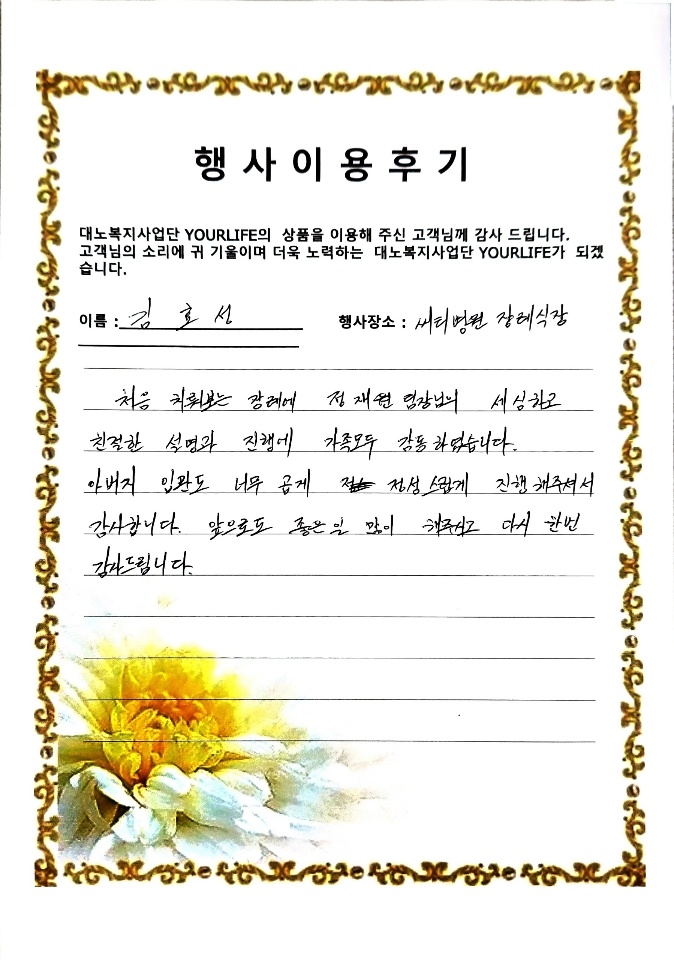 행사이용후기
대노복지사업단 YOURLIFE의 상품을 이용해 주신 고객님께 감사 드립니다.
고객님의 소리에 귀 기울이며 더욱 노력하는 대노복지사업단 YOURLIFE가 되겠
습니다.
이름 : 김효선 행사장소 : 씨티병원 장례식장
처음 치뤄보는 장례에 정재연 팀장님의 세심하고
친절한 설명과 진행에 가족모두 감동하였습니다.
아버지 입관도 너무 곱게 정성스럽게 진행해주셔서
감사합니다. 앞으로도 좋은일 많이 해주시고 다시 한번
감사드립니다.